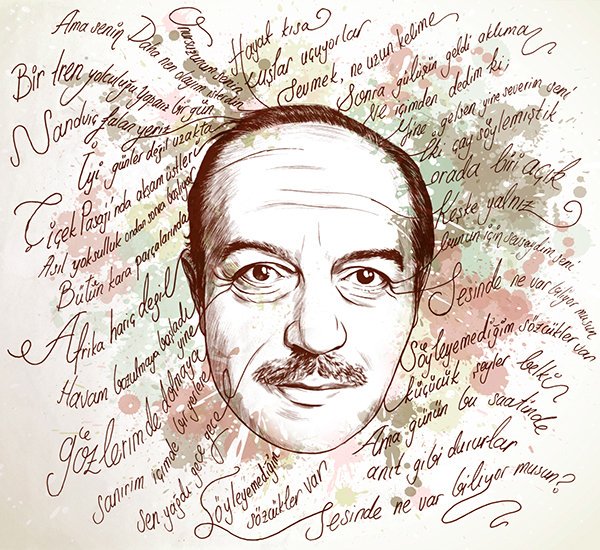 Ama senin
Daha nen olayım isterdin
Onursuzunum senin
Bir tren yolculuğu yapsak bir gün
Sandviç falan yeriz
İyi günler değil uzakta
Çiçek Pasajı'nda akşam üstleri
Asıl yoksulluk ondan sonra başlıyor
Bütün kara parçalarında
Afrika hariç değil
Havam bozulmaya başladı yine
gözlerimde dolmaya
sanırım içimde bir yerlere
sen yağdı gece gece
Söyleyemediğim
sözcükler var
Hayat kısa
kuşlar uçuyorlar
Sevmek, ne uzun kelime
Sonra gülüşün geldi aklıma
Ve içimden dedim ki;
Yine gelsen yine severim seni
İki çay söylemiştik
orada biri açık
Keşke yalnız
bunun için sevseydim seni
Sesinde ne var biliyor musun
Söyleyemediğim sözcükler var
küçücük şeyler belki
Ama günün bu saatinde
anıt gibi dururlar
Sesinde ne var biliyor musun?